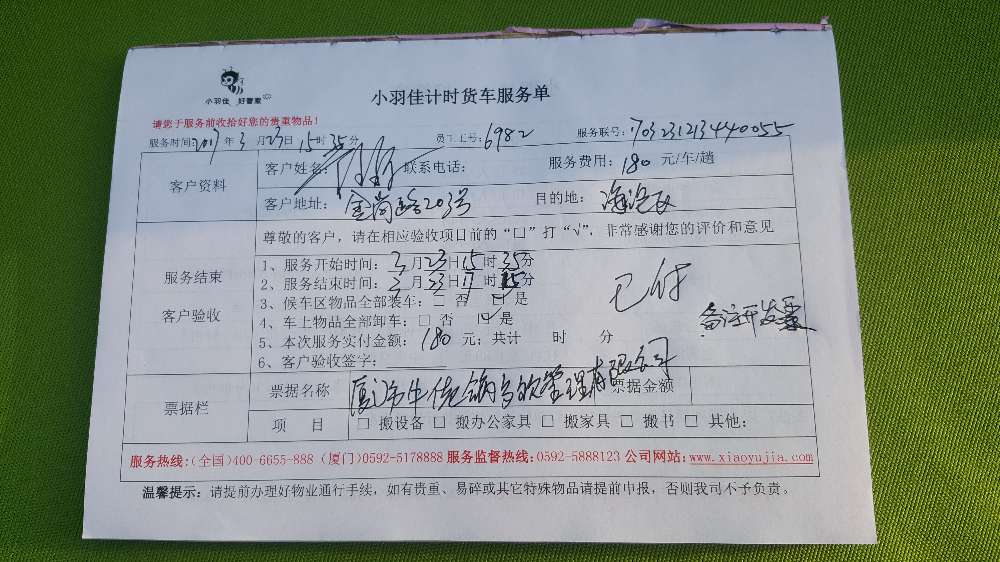 小羽佳 好管家
小羽佳计时货车服务单
请您于服务前收拾好您的贵重物品！
服务时间:2017年3月23日15时35分 员工工号:6982 服务联号:703231213440055
客户资料
客户姓名: 联系电话: 服务费用:180元/车/趟
客户地址: 金尚路203号 目的地: 海沧区
服务结束
客户验收
尊敬的客户，请在相应验收项目前的“口”打“√”，非常感谢您的评价和意见
1、服务开始时间:3月23日15时35分
2、服务结束时间:3月23日17时15分
3、候车区物品全部装车:□ 否 ☑ 是
4、车上物品全部卸车:□ 否 ☑ 是
5、本次服务实付金额:180元;共计 时 分
6、客户验收签字:
已付
备注开发票
票据栏
票据名称 厦门 管理有限公司 票据金额
项 目 □ 搬设备 □ 搬办公家具 □ 搬家具 □ 搬书 □ 其他:
服务热线:(全国)400-6655-888 (厦门)0592-5178888 服务监督热线:0592-5888123 公司网站:www.xiaoyujia.com
温馨提示: 请提前办理好物业通行手续，如有贵重、易碎或其它特殊物品请提前申报，否则我司不予负责。